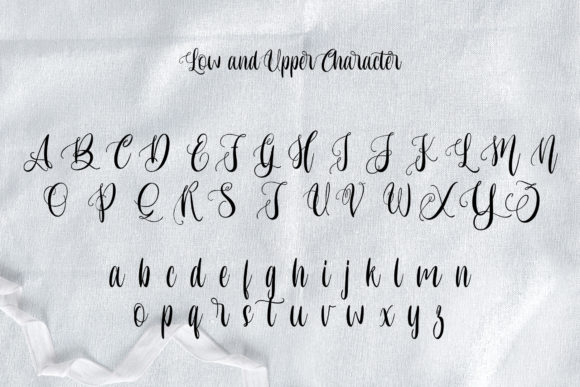 Low and Upper Character
A B C D E F G H I J K L M N
O P Q R S T U V W X Y Z
a b c d e f g h i j k l m n
o p q r s t u v w x y z